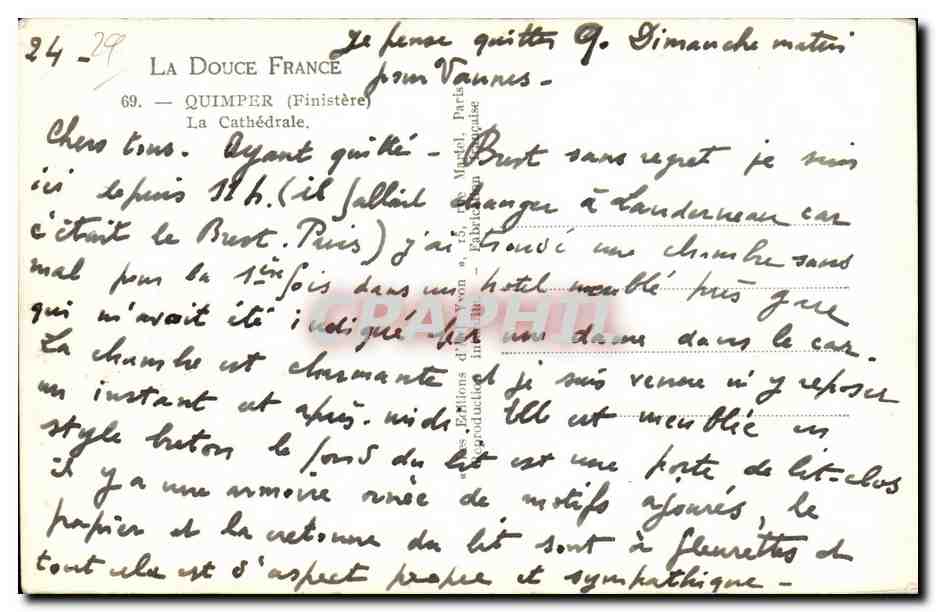 24 - 29
Je pense quitter Q. Dimanche matin
pour Vannes -
LA DOUCE FRANCE
69. — QUIMPER (Finistère)
La Cathédrale.
Chers tous. Ayant quitté - Brest sans regret je suis
ici depuis 11h. (il fallait changer à Landerneau car
c'était le Brest. Paris) j'ai trouvé une chambre sans
mal pour la 1ère fois dans un hotel meublé près gare
qui m'avait été indiqué par une dame dans le car.
La chambre est charmante et je suis venue m'y reposer
un instant cet après-midi. Elle est meublée en
style breton le fond du lit est une porte de lit-clos
il y a une armoire ornée de motifs ajourés, le
papier et la cretonne du lit sont à fleurettes et
tout cela est d'aspect propre et sympathique -
"Les Editions d'Art Yvon", 15, rue Martel, Paris
Reproduction interdite - Fabrication Française
CPAPHIL